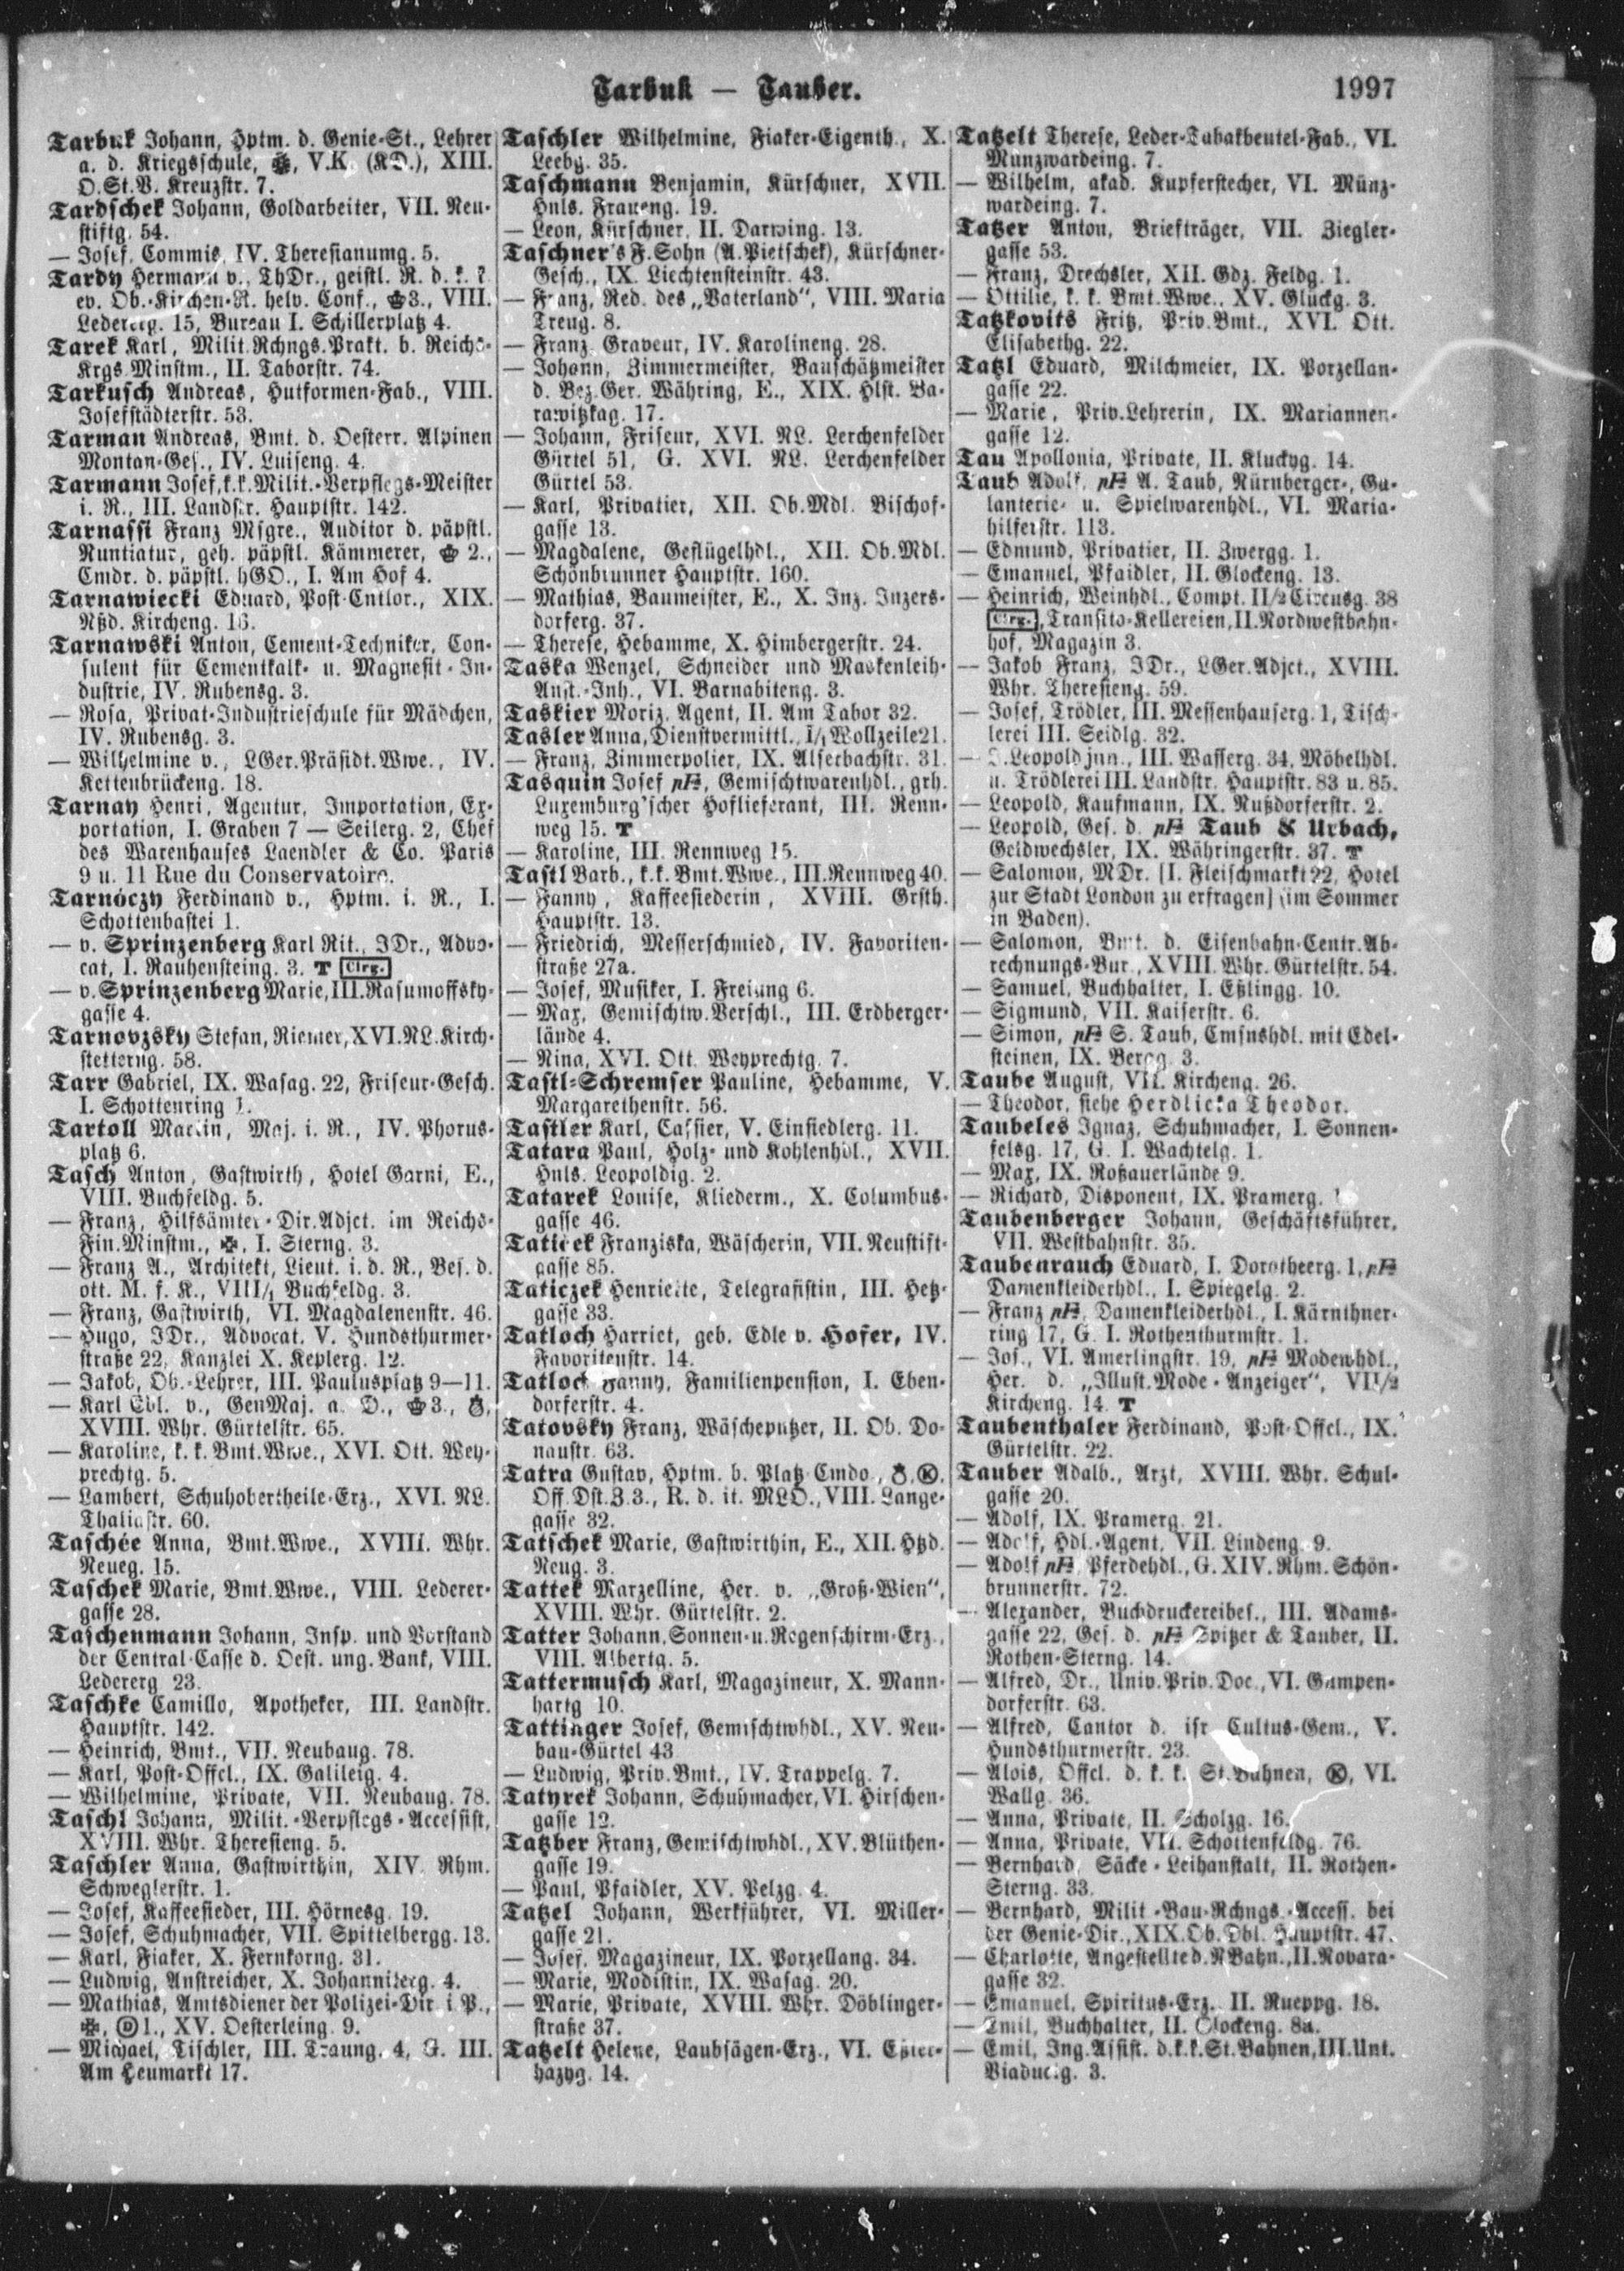 Tarbuk — Tauber.
1997
Tarbuk Johann, Hptm. d. Genie-St., Lehrer
a. d. Kriegsschule, V.K. (KD.), XIII.
O.St.V. Kreuzstr. 7.
Tardschek Johann, Goldarbeiter, VII. Neu-
stiftg. 54.
— Josef, Commis, IV. Theresianumg. 5.
Tardy Hermann v., ThDr., geistl. R. d.
ev. Ob.-Kirchen-R. helv. Conf., 3., VIII.
Ledererg. 15, Bureau I. Schillerplatz 4.
Tarek Karl, Milit.Rchngs.Prakt. b. Reichs-
Krgs.Minstm., II. Taborstr. 74.
Tarkusch Andreas, Hutformen-Fab., VIII.
Josefstädterstr. 53.
Tarman Andreas, Bmt. d. Oesterr. Alpinen
Montan-Ges., IV. Luiseng. 4.
Tarmann Josef, k.k. Milit.-Verpflegs-Meister
i. R., III. Landstr. Hauptstr. 142.
Tarnassi Franz Msgre., Auditor d. päpstl.
Nuntiatur, geh. päpstl. Kämmerer, 2.,
Cmdr. d. päpstl. hGO., I. Am Hof 4.
Tarnawiecki Eduard, Post-Cntlor., XIX.
Nßd. Kircheng. 16.
Tarnawski Anton, Cement-Techniker, Con-
sulent für Cementkalk- u. Magnesit-In-
dustrie, IV. Rubensg. 3.
— Rosa, Privat-Industrieschule für Mädchen,
IV. Rubensg. 3.
— Wilhelmine v., LGer.Präsidt.Wwe., IV.
Kettenbrückeng. 18.
Tarnay Henri, Agentur, Importation, Ex-
portation, I. Graben 7 — Seilerg. 2, Chef
des Warenhauses Laendler & Co. Paris
9 u. 11 Rue du Conservatoire.
Tarnóczy Ferdinand v., Hptm. i. R., I.
Schottenbastei 1.
— v. Sprinzenberg Karl Rit., JDr., Advo-
cat, I. Rauhensteing. 3. T Clrg.
— v. Sprinzenberg Marie, III. Rasumoffsky-
gasse 4.
Tarnovzsky Stefan, Riemer, XVI. NL. Kirch-
stetterng. 58.
Tarr Gabriel, IX. Wasag. 22, Friseur-Gesch.
I. Schottenring 1.
Tartoll Martin, Maj. i. R., IV. Phorus-
platz 6.
Tasch Anton, Gastwirth, Hotel Garni, E.,
VIII. Buchfeldg. 5.
— Franz, Hilfsämter-Dir.Adjct. im Reichs-
Fin.Minstm., I. Sterng. 3.
— Franz A., Architekt, Lieut. i. d. R., Bes. d.
ott. M. f. K., VIII/1 Buchfeldg. 3.
— Franz, Gastwirth, VI. Magdalenenstr. 46.
— Hugo, JDr., Advocat. V. Hundsthurmer-
straße 22, Kanzlei X. Keplerg. 12.
— Jakob, Ob.-Lehrer, III. Paulusplatz 9—11.
— Karl Edl. v., GenMaj. a. D., 3.,
XVIII. Whr. Gürtelstr. 65.
— Karoline, k. k. Bmt.Wwe., XVI. Ott. Wey-
prechtg. 5.
— Lambert, Schuhobertheile-Erz., XVI. NL.
Thaliastr. 60.
Taschée Anna, Bmt.Wwe., XVIII. Whr.
Neueg. 15.
Taschek Marie, Bmt.Wwe., VIII. Lederer-
gasse 28.
Taschenmann Johann, Insp. und Vorstand
der Central-Casse d. Oest. ung. Bank, VIII.
Ledererg 23.
Taschke Camillo, Apotheker, III. Landstr.
Hauptstr. 142.
— Heinrich, Bmt., VII. Neubaug. 78.
— Karl, Post-Offcl., IX. Galileig. 4.
— Wilhelmine, Private, VII. Neubaug. 78.
Taschl Johann, Milit.-Verpflegs-Accessist,
XVIII. Whr. Theresieng. 5.
Taschler Anna, Gastwirthin, XIV. Rhm.
Schweglerstr. 1.
— Josef, Kaffeesieder, III. Hörnesg. 19.
— Josef, Schuhmacher, VII. Spittelbergg. 13.
— Karl, Fiaker, X. Fernkorng. 31.
— Ludwig, Anstreicher, X. Johanniterg. 4.
— Mathias, Amtsdiener der Polizei-Dir. i. P.,
1., XV. Oesterleing. 9.
— Michael, Tischler, III. Traung. 4, G. III.
Am Heumarkt 17.
Taschler Wilhelmine, Fiaker-Eigenth., X.
Leebg. 35.
Taschmann Benjamin, Kürschner, XVII.
Hnls. Fraueng. 19.
— Leon, Kürschner, II. Darwing. 13.
Taschner's F. Sohn (A. Pietschek), Kürschner-
Gesch., IX. Liechtensteinstr. 43.
— Franz, Red. des „Vaterland“, VIII. Maria
Treug. 8.
— Franz Graveur, IV. Karolineng. 28.
— Johann, Zimmermeister, Bauschätzmeister
d. Bez.Ger. Währing, E., XIX. Hlst. Ba-
rawitzkag. 17.
— Johann, Friseur, XVI. NL. Lerchenfelder
Gürtel 51, G. XVI. NL. Lerchenfelder
Gürtel 53.
— Karl, Privatier, XII. Ob.Mdl. Bischof-
gasse 13.
— Magdalene, Geflügelhdl., XII. Ob.Mdl.
Schönbrunner Hauptstr. 160.
— Mathias, Baumeister, E., X. Inz. Inzers-
dorferg. 37.
— Therese, Hebamme, X. Himbergerstr. 24.
Taska Wenzel, Schneider und Maskenleih-
Anst.-Inh., VI. Barnabiteng. 3.
Taskier Moriz, Agent, II. Am Tabor 32.
Tasler Anna, Dienstvermittl., I/1 Wollzeile 21.
— Franz, Zimmerpolier, IX. Alserbachstr. 31.
Tasquin Josef pF, Gemischtwarenhdl., grh.
Luxemburg'scher Hoflieferant, III. Renn-
weg 15. T
— Karoline, III. Rennweg 15.
Tastl Barb., k.k. Bmt.Wwe., III. Rennweg 40.
— Fanny, Kaffeesiederin, XVIII. Grsth.
Hauptstr. 13.
— Friedrich, Messerschmied, IV. Favoriten-
straße 27a.
— Josef, Musiker, I. Freiung 6.
— Max, Gemischtw.Verschl., III. Erdberger-
lände 4.
— Nina, XVI. Ott. Weyprechtg. 7.
Tastl-Schremser Pauline, Hebamme, V.
Margarethenstr. 56.
Tastler Karl, Cassier, V. Einsiedlerg. 11.
Tatara Paul, Holz- und Kohlenhdl., XVII.
Hnls. Leopoldig. 2.
Tatarek Louise, Kliederm., X. Columbus-
gasse 46.
Franziska, Wäscherin, VII. Neustift-
gasse 85.
Taticzek Henriette, Telegrafistin, III. Hetz-
gasse 33.
Tatloch Harriet, geb. Edle v. Hofer, IV.
Favoritenstr. 14.
Tatloch Fanny, Familienpension, I. Eben-
dorferstr. 4.
Tatovsky Franz, Wäscheputzer, II. Ob. Do-
naustr. 63.
Tatra Gustav, Hptm. b. Platz Cmdo., K,
Off.Dst.Z.3., R. d. it. MLO., VIII. Lange-
gasse 32.
Tatschek Marie, Gastwirthin, E., XII. Htzd.
Neug. 3.
Tattek Marzelline, Her. v. „Groß-Wien“,
XVIII. Whr. Gürtelstr. 2.
Tatter Johann, Sonnen- u. Regenschirm-Erz.,
VIII. Albertg. 5.
Tattermusch Karl, Magazineur, X. Mann-
hartg 10.
Tattinger Josef, Gemischtwhdl., XV. Neu-
bau-Gürtel 43
— Ludwig, Priv.Bmt., IV. Trappelg. 7.
Tatyrek Johann, Schuhmacher, VI. Hirschen-
gasse 12.
Tatzber Franz, Gemischtwhdl., XV. Blüthen-
gasse 19.
— Paul, Pfaidler, XV. Pelzg. 4.
Tatzel Johann, Werkführer, VI. Miller-
gasse 21.
— Josef, Magazineur, IX. Porzellang. 34.
— Marie, Modistin, IX. Wasag. 20.
— Marie, Private, XVIII. Whr. Döblinger-
straße 37.
Tatzelt Helene, Laubsägen-Erz., VI. Eszter-
hazyg. 14.
Tatzelt Therese, Leder-Tabakbeutel-Fab., VI.
Münzwardeing. 7.
— Wilhelm, akad. Kupferstecher, VI. Münz-
wardeing. 7.
Tatzer Anton, Briefträger, VII. Ziegler-
gasse 53.
— Franz, Drechsler, XII. Gdz. Feldg. 1.
— Ottilie, k. k. Bmt.Wwe., XV. Glückg. 3.
Tatzkovits Fritz, Priv.Bmt., XVI. Ott.
Elisabethg. 22.
Tatzl Eduard, Milchmeier, IX. Porzellan-
gasse 22.
— Marie, Priv.Lehrerin, IX. Mariannen-
gasse 12.
Tau Apollonia, Private, II. Kluckyg. 14.
Taub Adolf, pF A. Taub, Nürnberger-, Ga-
lanterie- u. Spielwarenhdl., VI. Maria-
hilferstr. 113.
— Edmund, Privatier, II. Zwergg. 1.
— Emanuel, Pfaidler, II. Glockeng. 13.
— Heinrich, Weinhdl., Compt. II/2 Circusg. 38
Clrg., Transito-Kellereien, II. Nordwestbahn-
hof, Magazin 3.
— Jakob Franz, JDr., LGer.Adjct., XVIII.
Whr. Theresieng. 59.
— Josef, Trödler, III. Messenhauserg. 1, Tisch-
lerei III. Seidlg. 32.
— J. Leopold jun., III. Wasserg. 34, Möbelhdl.
u. Trödlerei III. Landstr. Hauptstr. 83 u. 85.
— Leopold, Kaufmann, IX. Nußdorferstr. 2.
— Leopold, Ges. d. pF Taub & Urbach,
Geldwechsler, IX. Währingerstr. 37. T
— Salomon, MDr. [I. Fleischmarkt 22, Hotel
zur Stadt London zu erfragen] (im Sommer
in Baden).
— Salomon, Bmt. d. Eisenbahn-Centr.Ab-
rechnungs-Bur., XVIII. Whr. Gürtelstr. 54.
— Samuel, Buchhalter, I. Eßlingg. 10.
— Sigmund, VII. Kaiserstr. 6.
— Simon, pF S. Taub, Cmsnshdl. mit Edel-
steinen, IX. Bergg. 3.
Taube August, VII. Kircheng. 26.
— Theodor, siehe Herdlicka Theodor.
Taubeles Ignaz, Schuhmacher, I. Sonnen-
felsg. 17, G. I. Wachtelg. 1.
— Max, IX. Roßauerlände 9.
— Richard, Disponent, IX. Pramerg.
Taubenberger Johann, Geschäftsführer,
VII. Westbahnstr. 35.
Taubenrauch Eduard, I. Dorotheerg. 1, pF
Damenkleiderhdl., I. Spiegelg. 2.
— Franz pF, Damenkleiderhdl., I. Kärnthner-
ring 17, G. I. Rothenthurmstr. 1.
— Jos., VI. Amerlingstr. 19, pF Modewhdl.,
Her. d. „Illust.Mode-Anzeiger“, VII/2
Kircheng. 14. T
Taubenthaler Ferdinand, Post-Offcl., IX.
Gürtelstr. 22.
Tauber Adalb., Arzt, XVIII. Whr. Schul-
gasse 20.
— Adolf, IX. Pramerg. 21.
— Adolf, Hdl.-Agent, VII. Lindeng. 9.
— Adolf pF, Pferdehdl., G. XIV. Rhm. Schön-
brunnerstr. 72.
— Alexander, Buchdruckereibes., III. Adams-
gasse 22, Ges. d. pF Spitzer & Tauber, II.
Rothen-Sterng. 14.
— Alfred, Dr., Univ.Priv.Doc., VI. Gumpen-
dorferstr. 63.
— Alfred, Cantor d. isr Cultus-Gem., V.
Hundsthurmerstr. 23.
— Alois, Offcl. d. k. k. St.Bahnen, K, VI.
Wallg. 36.
— Anna, Private, II. Scholzg. 16.
— Anna, Private, VII. Schottenfeldg. 76.
— Bernhard, Säcke-Leihanstalt, II. Rothen-
Sterng. 33.
— Bernhard, Milit.-Bau-Rchngs.-Access. bei
der Genie-Dir., XIX. Ob.Dbl. Hauptstr. 47.
— Charlotte, Angestellte d. NBahn., II. Novara-
gasse 32.
— Emanuel, Spiritus-Erz. II. Rueppg. 18.
— Emil, Buchhalter, II. Glockeng. 8a.
— Emil, Ing.Assist. d.k.k.St.Bahnen, III. Unt.
Viaductg. 3.